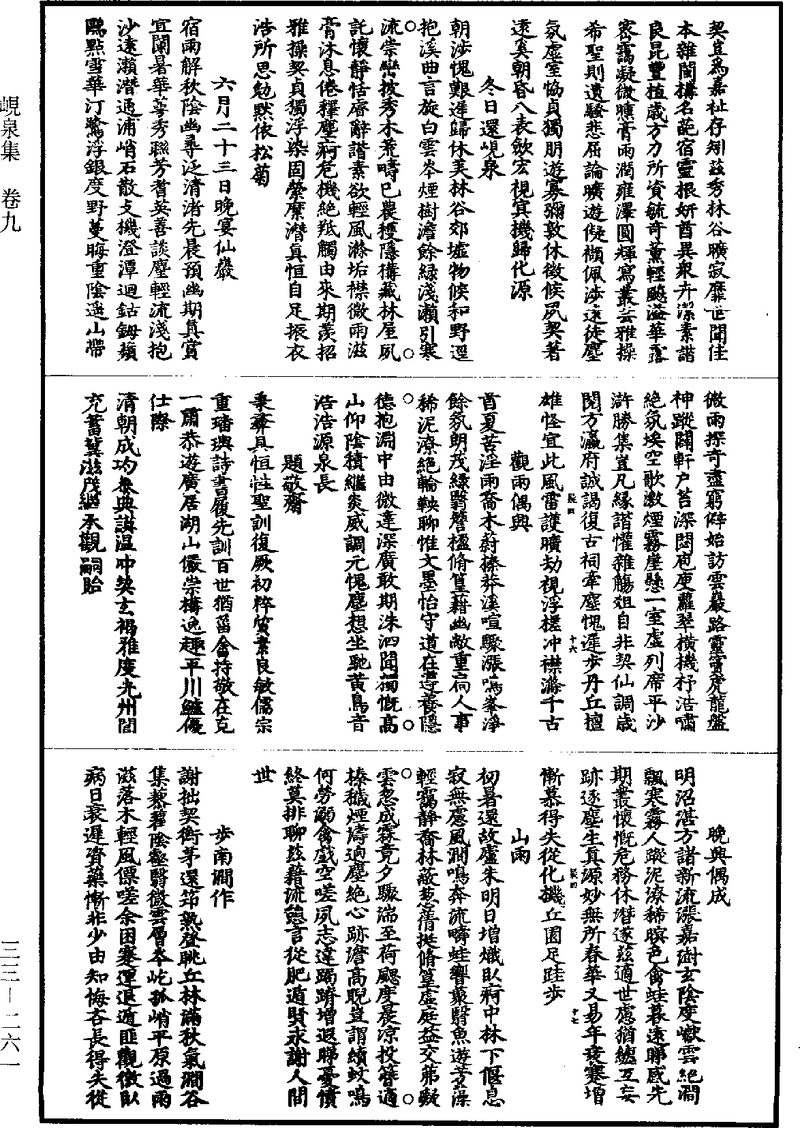 契宜爲嘉祉存列茲秀林谷曠寂靡世聞佳
本雜閬搆名葩宿靈根妍酋異衆卉潔素諧
良昆豐植葳方力所資毓奇薰輕颸溢華露
密靄凝微曛膏雨潤雍澤圓輝寫叢芸雅操
希聖則遺騷悲屈論曠遊儗襭佩涉遠徒塵
氛虛室恊貞獨朋遊寡彌敦休徵候夙契著
遠奚朝昏八表斂宏視寘機歸化源
冬日還峴泉
朝涉愧艱遲歸休美林谷郊墟物候和野逕
抱溪曲言旋白雲岑煙樹澹餘緑淺瀬引寒
流崇巒披秀木荒疇已農穫隱構藏林屋夙
託懷靜恬唐辭諧素欲輕風滌垢襟微雨滋
膏沐息倦釋塵痾危機絶羝觸由來期羨招
雅操契貞獨浮染固縈縻潜真恒自足振衣
浩所思勉默依松菊
六月二十三日晚宴仙巖
宿雨解秋陰幽尋泛清渚先晨預幽期真賞
宜闌暑華萼秀聯芳耆英善談麈輕流淺抱
沙遠瀬潜通浦峭石散支機澄潭迴鈷鉧蘋
鷗點雪華汀鷺浮銀度野蔓晦重陰遥山帶
微雨探奇盡窮僻始訪雲巖路靈竇虎龍盤
神蹤闢軒户苔深閟庖廋蘿翠横機杼浩嘯
絶氛埃空歌激煙霧崖懸一室虛列席平沙
滸勝集豈凡緣諧懽雜觴俎自非契仙調歳
閱方瀛府誠謁復古祠牽塵愧遲步丹丘檀
雄怪宜此風雷護曠劫視浮槎冲襟滌千古
觀雨偶興
首夏苦淫雨喬木蔚榛莽溪喧驟漲鳴峯淨
餘氛朗茂緑翳簷楹脩篁藉幽敞重扃人事
稀泥潦絶輪鞅聊惟文墨怡守道在遵養隱
德抱淵中由微達深廣敢期洙泗間獨慨高
山仰陰積繼炎威調元愧塵想坐馳黃鳥音
浩浩源泉長
題敬齋
秉彝具恒性聖訓復厥初粹質素良敏儒宗
重璠璵詩書履先訓百世猶菑畬持敬在克
一肅恭遊廣居湖山儼崇構逸趣平川鱸優
仕際
清朝成均恭典謨温冲契玄褐雅度光州閭
充蓄冀滋茂繼承觀嗣貽
晚興偶成
明沼湛方諸新流漲嘉澍玄陰度巘雲絶澗
飄寒霧人蹤泥潦稀暝色禽蛙暮遠睇感先
期叢懷慨危務休潜遂茲適世慮猶纏互妄
跡逐塵生真源妙無所春華又易年衰蹇增
慚慕得失從化機丘園足跬步
山雨
初暑還故廬朱明日增熾臥痾中林下偃息
寂無慮風澗鳴奔流疇蛙響叢翳魚遊苦藻
輕靄靜喬林蔽葱蒨挺脩篁虛庭益交茀歎
雲忽成霖竟夕驟湍至荷颸度晨凉投簪適
榛穢煙濤逈塵絶心跡澹高睨豈謂績蚊鳴
何勞嗣禽戲空嗟夙志違躅躋增遐睇憂憤
終莫排聊茲藉流憩言從肥遁賢永謝人間
世
步南澗作
謝拙契衡茅還笻熟登眺丘林滿秋氣澗谷
集藜藋陰壑翳微雲層岑屹孤峭平原過雨
滋落木輕風僄嗟余困蹇運退遁匪觀徼臥
病日衰遲資藥慚非少由知悔吝長得失從
峴泉集　卷九
三三－二六一